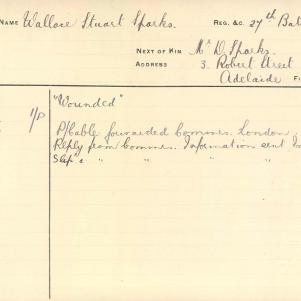 NAME Wallace Stuart Sparks. REG. &C. 27th Bat
NEXT OF KIN Mr D. Sparks.
ADDRESS 3. Robert Street
Adelaide
"Wounded"
P/Cable forwarded Commrs. London
Reply from Commrs. Information sent
" " "